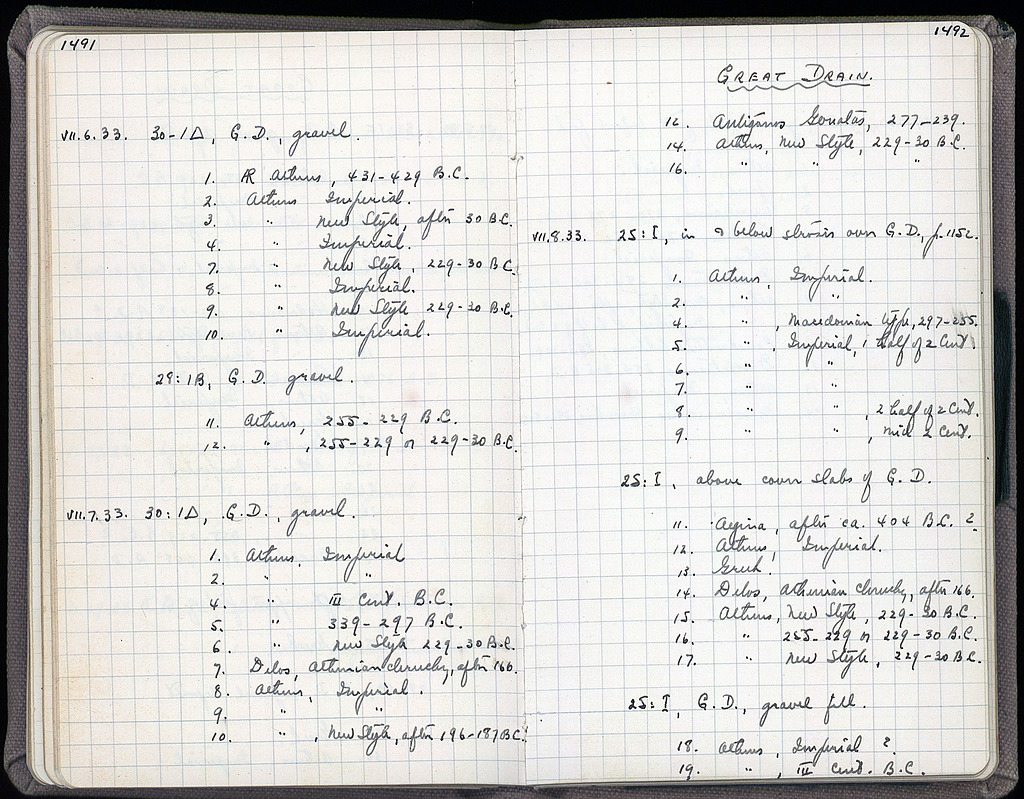 1491
VII.6.33. 30-1Δ, G.D., gravel.
1. AR Athens, 431-429 B.C.
2. Athens Imperial.
3. " New Style, after 30 B.C.
4. " Imperial.
7. " New Style, 229-30 B.C.
8. " Imperial.
9. " New Style 229-30 B.C.
10. " Imperial.
29:1B, G.D. gravel.
11. Athens, 255-229 B.C.
12. " , 255-229 or 229-30 B.C.
VII.7.33. 30:1Δ, G.D., gravel.
1. Athens, Imperial
2. " "
4. " III Cent. B.C.
5. " 339-297 B.C.
6. " New Style 229-30 B.C.
7. Delos, Athenian cleruchy, after 166.
8. Athens, Imperial.
9. " "
10. " , New Style, after 196-187 B.C.
1492
GREAT DRAIN.
12. Antigonos Gonatas, 277-239.
14. Athens, New Style, 229-30 B.C.
16. " " "
VII.8.33. 25:I, in below stroses over G.D., p. 1152.
1. Athens, Imperial.
2. " "
4. " , Macedonian type, 297-255.
5. " , Imperial, 1 half of 2 Cent.
6. " "
7. " "
8. " " , 2 half of 2 Cent.
9. " " , mid 2 Cent.
25:I, above cover slabs of G.D.
11. Aegina, after ca. 404 B.C. ?
12. Athens, Imperial.
13. Greek.
14. Delos, Athenian cleruchy, after 166.
15. Athens, New Style, 229-30 B.C.
16. " 255-229 or 229-30 B.C.
17. " New Style, 229-30 B.C.
25:I, G.D., gravel fill.
18. Athens, Imperial ?
19. " , III Cent. B.C.